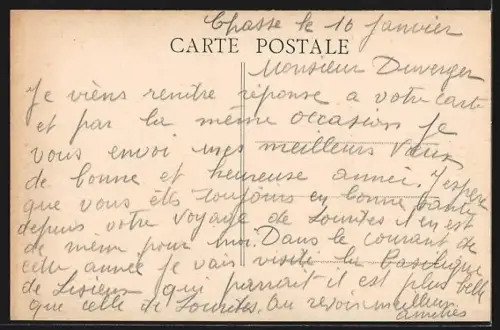 Chasse le 10 Janvier
CARTE POSTALE
Monsieur Duverger
Je viens rendre réponse a votre carte
et par la même occasion Je
vous envoi mes meilleurs Vœux
de bonne et heureuse année. J'espère
que vous êts toujours en bonne santé
depuis votre voyage de Lourdes il en est
de mêm pour moi. Dans le courant de
cette année Je vais visité la Basilique
de Lisieux qui parrait il est plus belle
que celle de Lourdes. au revoir meilleurs
amitiés